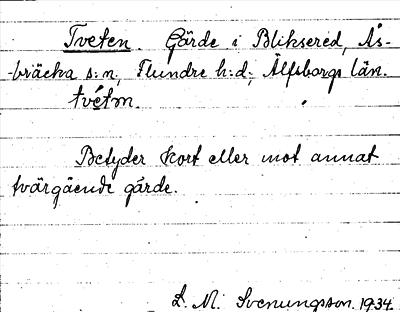 Tveten. Gärde i Bliksered, Ås-
-bräcka s:n, Flundre h:d, Älfsborgs län.
tvétn.
Betyder kort eller mot annat
tvärgående gärde.
L. M. Svenungsson. 1934.